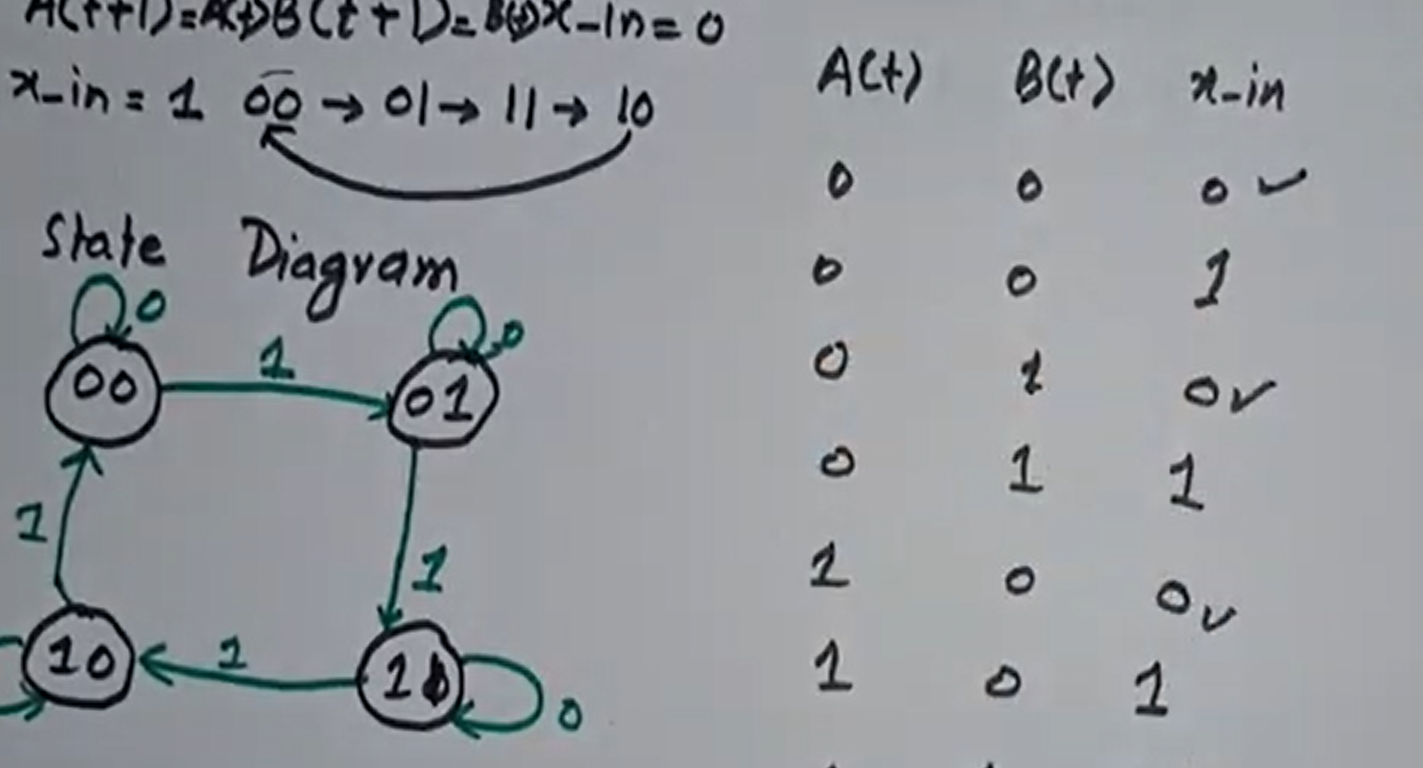 A(t+1)=A(t)B(t+1)=B(t)x-in=0
x-in = 1 00 → 01 → 11 → 10
State Diagram
0
0
00
1
01
1
1
10
1
11
0
A(t) B(t) x-in
0 0 0 ✓
0 0 1
0 1 0 ✓
0 1 1
1 0 0 ✓
1 0 1